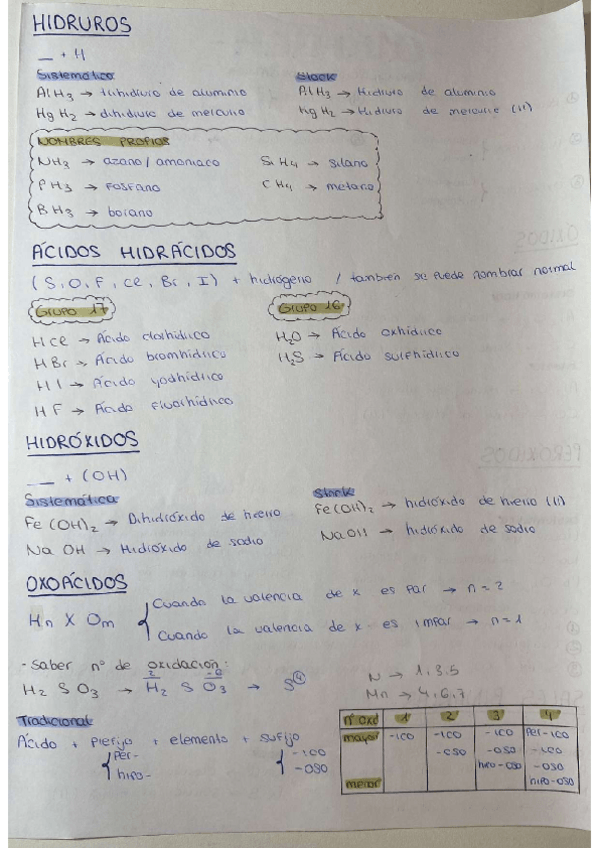 HIDRUROS
__ + H
Sistemático Stock
AlH3 → trihidruro de aluminio AlH3 → Hidruro de aluminio
HgH2 → dihidruro de mercurio HgH2 → Hidruro de mercurio (II)
NOMBRES PROPIOS
NH3 → azano / amoniaco SiH4 → silano
PH3 → FOSFANO CH4 → metano
BH3 → borano
ÁCIDOS HIDRÁCIDOS
(S, O, F, Cl, Br, I) + hidrógeno / también se puede nombrar normal
Grupo 17 Grupo 16
HCl → Ácido clorhídrico H2O → Ácido oxhídrico
HBr → Ácido bromhídrico H2S → Ácido sulphídrico
HI → Ácido yodhídrico
HF → Ácido Fluorhídrico
HIDRÓXIDOS
__ + (OH)
Sistemática Stock
Fe(OH)2 → Dihidróxido de hierro Fe(OH)2 → hidróxido de hierro (II)
NaOH → Hidróxido de sodio NaOH → hidróxido de sodio
OXOÁCIDOS
Hn X Om { Cuando la valencia de x es par → n = 2
Cuando la valencia de x es impar → n = 1
- Saber nº de oxidación:
H2SO3 → H2 S O3 → S④
N → 1,3,5
Mn → 4,6,7
Tradicional
Ácido + Prefijo + elemento + sufijo
{ Per- { -ICO
hipo- -OSO
nº oxd 1 2 3 4
mayor -ICO -ICO -ICO Per-ICO
-OSO -OSO -ICO
hipo-OSO -OSO
menor hipo-OSO